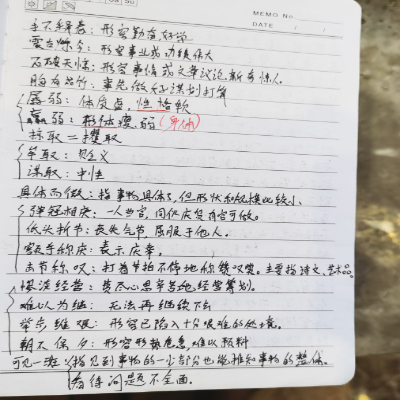 MEMO NO.
DATE / /
手不释卷：形容勤奋好学
震古烁今：形容事业或功绩伟大
石破天惊：形容事情或文章议论新奇惊人。
胸有成竹：事先做好谋划打算
孱弱：体质虚，性格软
羸弱：形体瘦弱（身体）
掠取＝攫取
争取：贬义
谋取：中性
具体而微：指事物具体，但形状和规模比较小
弹冠相庆：一人当官，同伙庆贺有官可做。
低头折节：丧失气节 屈服于他人。
额手称庆：表示庆幸。
击节称叹：打着节拍不停地称赞叹赏。主要指诗文、艺术品。
惨淡经营：费尽心思辛苦地经营筹划。
难以为继： 无法再继续下去
举步维艰：形容已陷入十分艰难的处境。
朝不保夕：形容形势危急，难以预料
可见一斑：指见到事物的一小部分也能推知事物的整体。
看待问题不全面。